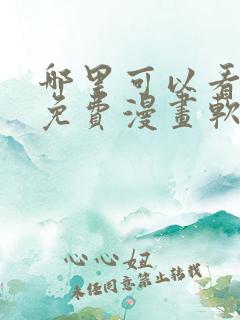 哪里可以看
免費漫畫軟
心心妞
未经同意禁止转载